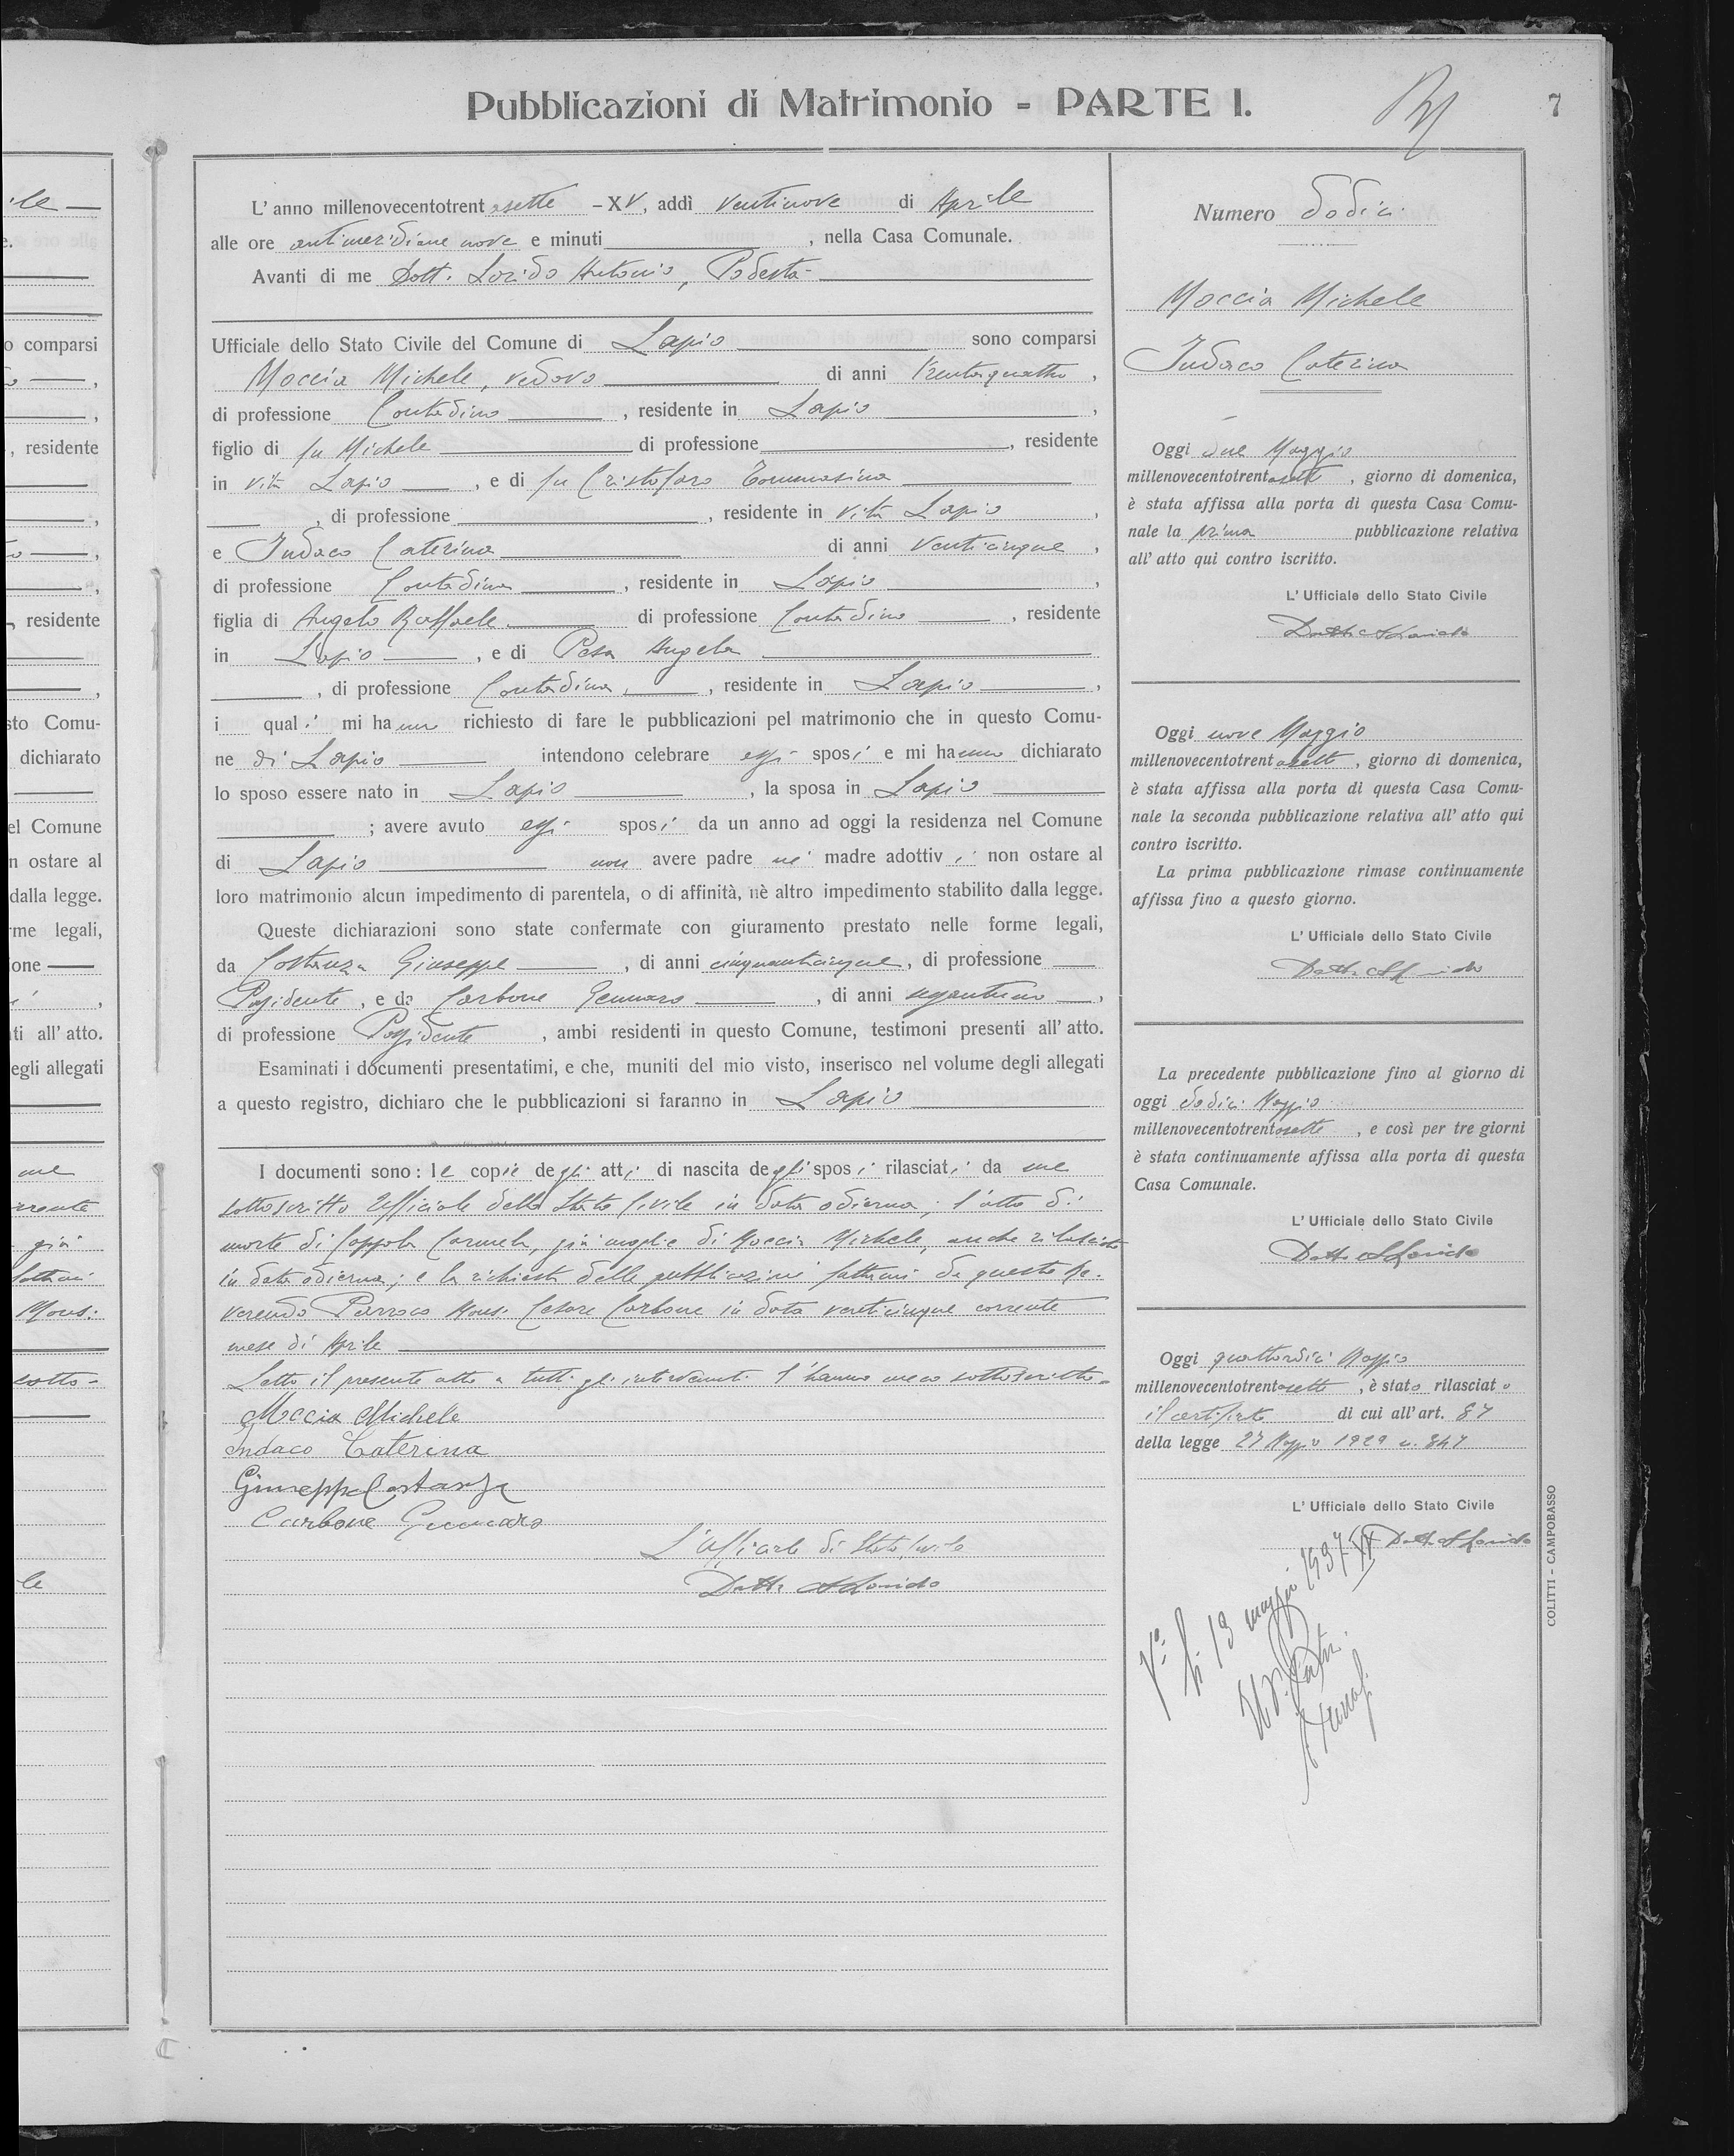 Pubblicazioni di Matrimonio - PARTE I.
7
L'anno millenovecentotrentasette - XV, addì ventinove di Aprile
alle ore antimeridiane nove e minuti , nella Casa Comunale.
Avanti di me Dott. Lorido Antonio, Podestà
Ufficiale dello Stato Civile del Comune di Lapio sono comparsi
Moccia Michele, vedovo di anni trentaquattro,
di professione Contadino, residente in Lapio,
figlio di fu Michele di professione , residente
in vita Lapio, e di fu Cristofaro Tommasina
, di professione , residente in vita Lapio,
e Indaco Caterina di anni venticinque,
di professione Contadina, residente in Lapio,
figlia di Angelo Raffaele di professione Contadino, residente
in Lapio, e di Pesa Angela
, di professione Contadina, residente in Lapio,
i quali mi hanno richiesto di fare le pubblicazioni pel matrimonio che in questo Comu-
ne di Lapio intendono celebrare essi sposi e mi hanno dichiarato
lo sposo essere nato in Lapio, la sposa in Lapio
; avere avuto essi sposi da un anno ad oggi la residenza nel Comune
di Lapio non avere padre nè madre adottivi non ostare al
loro matrimonio alcun impedimento di parentela, o di affinità, nè altro impedimento stabilito dalla legge.
Queste dichiarazioni sono state confermate con giuramento prestato nelle forme legali,
da Costanza Giuseppe, di anni cinquantacinque, di professione
Possidente, e da Carbone Gennaro, di anni sessantuno,
di professione Possidente, ambi residenti in questo Comune, testimoni presenti all'atto.
Esaminati i documenti presentatimi, e che, muniti del mio visto, inserisco nel volume degli allegati
a questo registro, dichiaro che le pubblicazioni si faranno in Lapio
I documenti sono: le copie degli atti di nascita degli sposi rilasciati da me
sottoscritto Ufficiale dello Stato Civile in data odierna; l'atto di
morte di Coppola Carmela, già moglie di Moccia Michele, anche rilasciato
in data odierna; e la richiesta delle pubblicazioni fattami da questo Re-
verendo Parroco Mons. Cesare Carbone in data venticinque corrente
mese di Aprile
Letto il presente atto a tutti gli intervenuti l'hanno meco sottoscritto.
Moccia Michele
Indaco Caterina
Giuseppe Costanza
Carbone Gennaro
L'Ufficiale di Stato Civile
Dott. A Lorido
Numero dodici
Moccia Michele
Indaco Caterina
Oggi due Maggio
millenovecentotrentasette, giorno di domenica,
è stata affissa alla porta di questa Casa Comu-
nale la prima pubblicazione relativa
all'atto qui contro iscritto.
L'Ufficiale dello Stato Civile
Dott. A Lorido
Oggi nove Maggio
millenovecentotrentasette, giorno di domenica,
è stata affissa alla porta di questa Casa Comu-
nale la seconda pubblicazione relativa all'atto qui
contro iscritto.
La prima pubblicazione rimase continuamente
affissa fino a questo giorno.
L'Ufficiale dello Stato Civile
Dott. A Lorido
La precedente pubblicazione fino al giorno di
oggi dodici Maggio
millenovecentotrentasette, e così per tre giorni
è stata continuamente affissa alla porta di questa
Casa Comunale.
L'Ufficiale dello Stato Civile
Dott. A Lorido
Oggi quattordici Maggio
millenovecentotrentasette, è stato rilasciato
il certificato di cui all'art. 87
della legge 27 Maggio 1929 n. 847
L'Ufficiale dello Stato Civile
Dott. A Lorido
V° li 13 maggio 1937 XV
COLITTI - CAMPOBASSO
ile
e.
o comparsi
, residente
, residente
sto Comu-
dichiarato
el Comune
n ostare al
dalla legge.
rme legali,
one
ti all'atto.
egli allegati
me
rrente
già
fattami
Mons.
sotto-
le